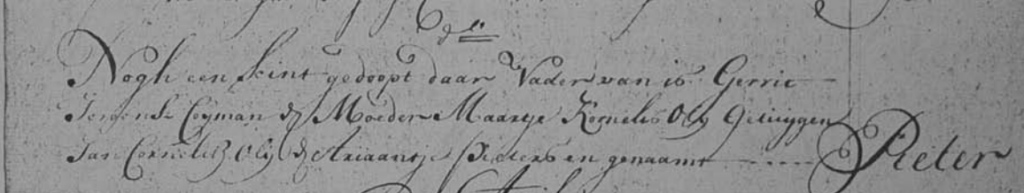 dº
Nogh een kint gedoopt daar Vader van is Gerrit
Coyman d Moeder Maartje Kornelis Oly Getuijgen
Jan Cornelisz Olij & Ariaantje Pieters en genaamt ---- Pieter